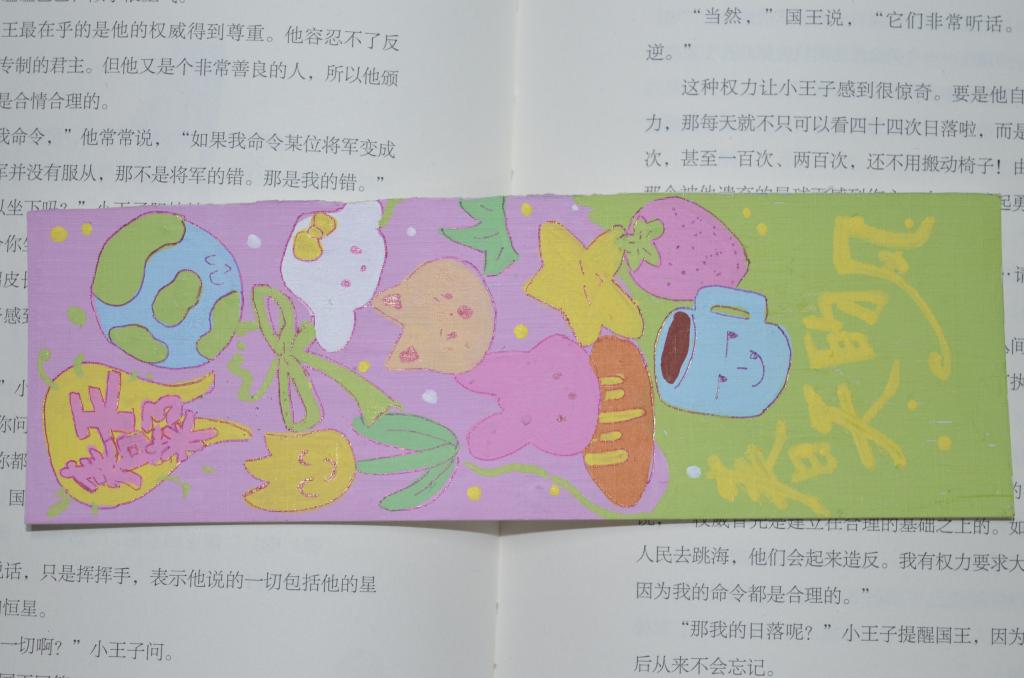 王最在乎的是他的权威得到尊重。他容忍不了反
专制的君主。但他又是个非常善良的人，所以他颁
是合情合理的。
我命令，”他常常说，“如果我命令某位将军变成
军并没有服从，那不是将军的错。那是我的错。”
以坐下吗？”小王子
说话，只是挥挥手，表示他说的一切包括他的星
恒星。
一切啊？”小王子问。
春天的风
“当然，”国王说，“它们非常听话。
逆。”
这种权力让小王子感到很惊奇。要是他自
力，那每天就不只可以看四十四次日落啦，而是
次，甚至一百次、两百次，还不用搬动椅子！由
权威首先是建立在合理的基础之上的。如
人民去跳海，他们会起来造反。我有权力要求大
因为我的命令都是合理的。”
“那我的日落呢？”小王子提醒国王，因为
后从来不会忘记。